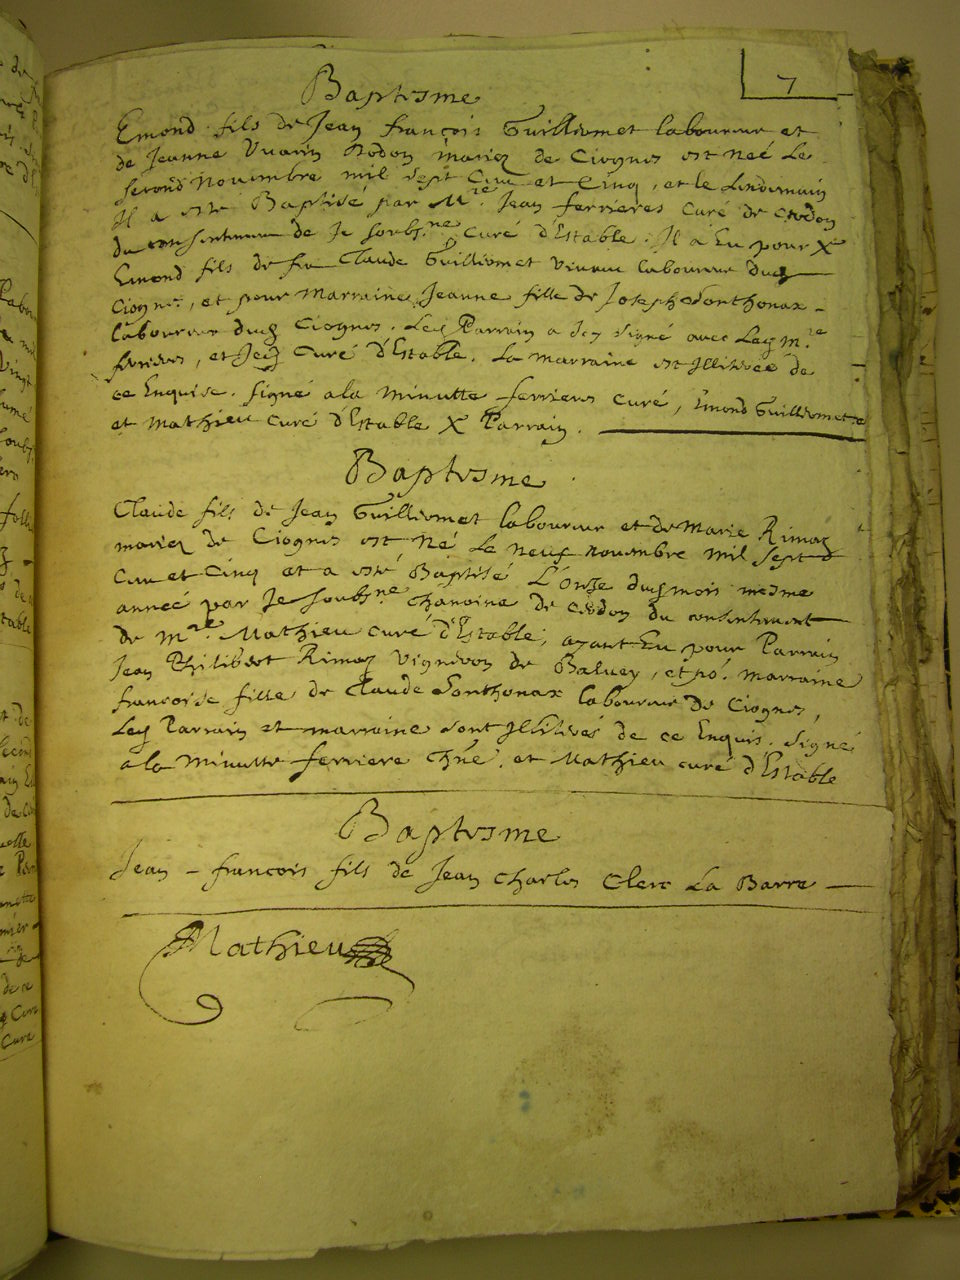 7
Baptisme
Emond fils de Jean françois Guilliomet laboureur et
de Jeanne Vuarin Dodon mariez de Ciognes est neé Le
second Nouembre mil sept Cent et Cinq, et le Lendemain
Il a esté Baptisé par Mre. Jean ferrieres Curé de Ceodon
du consentement de Je soubs.né Curé d'Estable. Il a Eu pour X
Emond fils de feu Claude Guilliomet viuant laboureur dud
Ciognes, et pour Marraine Jeanne fille de Joseph Sonthonax
laboureur dud Ciognes. Led Parrain a Icy signé avec Led m.re
ferrieres, et Jed Curé d'Estable. La marraine est Illitérée de
ce Enquise. Signé a la Minutte ferrieres Curé, Emond Guilliomet
et Mathieu Curé d'Estable X Parrain.
Baptisme
Claude fils de Jean Guilliomet laboureur et de Marie Rimoz
mariez de Ciognes est Né Le neuf nouembre mil sept
Cent et Cinq et a esté Baptisé L'Onze dud mois mesme
anneé par Je soubs.né chanoine de Ceodon du consentement
de Mre. Mathieu curé d'Estable, ayant Eu pour Parrain
Jean Philibert Rimoz Vigneron de Balvey, et po. marraine
francoise fille de Claude Sonthonax laboureur de Ciognes,
Led Parrain et marraine sont Illiterés de ce Enquis. Signé
a la Minutte ferriere Chne. et Mathieu curé d'Estable
Baptisme
Jean - francois fils de Jean Charles Clerc La Barre
Mathieu